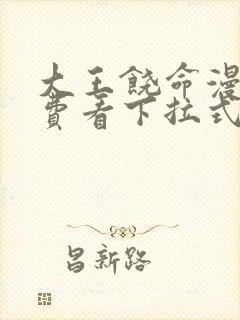 大王饶命漫
费看下拉式
昌新路